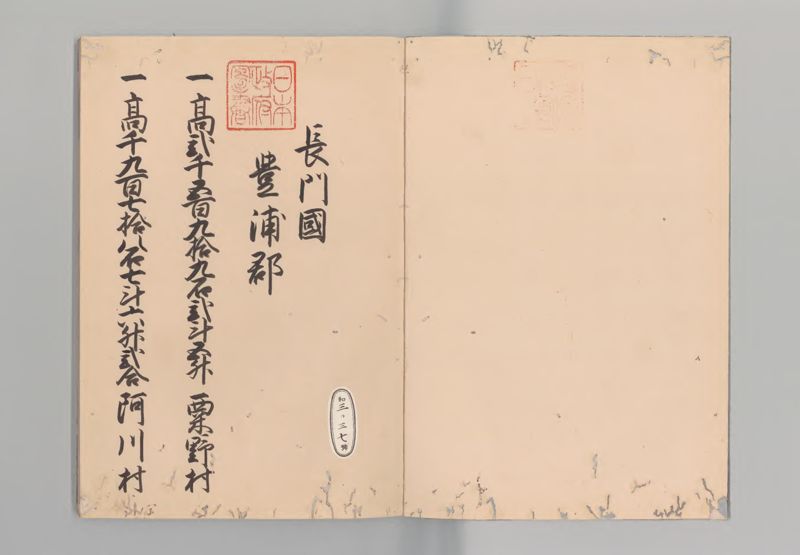 長門國
豊浦郡
一高弐千五百九拾九石弐斗五升 粟野村
一高千九百七拾八石七斗六升弐合 阿川村
日本
政府
圖書